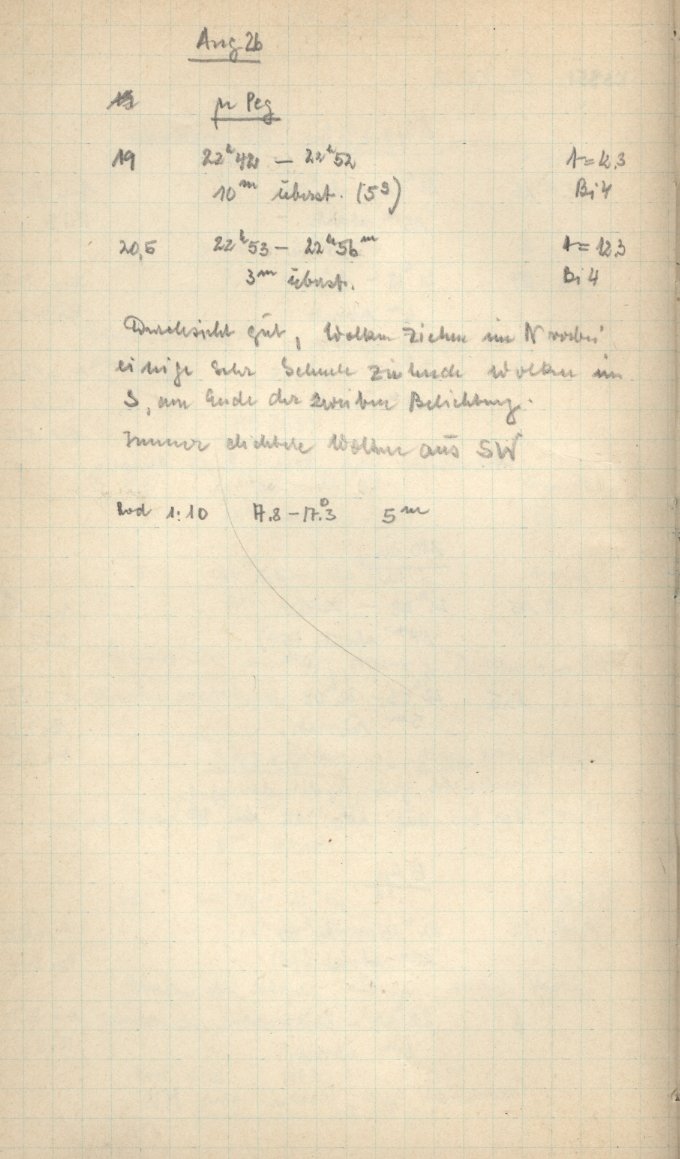 Aug 26
μ Peg
19 22ʰ42 – 22ʰ52 t=12,3
10ᵐ überst. (5ˢ) Bi 4
20,5 22ʰ53 – 22ʰ56ᵐ t=12,3
3ᵐ überst. Bi 4
Durchsicht gut, Wolken ziehen im N vorbei
einige sehr schnell ziehende Wolken im
S, am Ende der zweiten Belichtung.
Immer dichtere Wolken aus SW
Rod 1:10 17.8 – 17.3° 5ᵐ